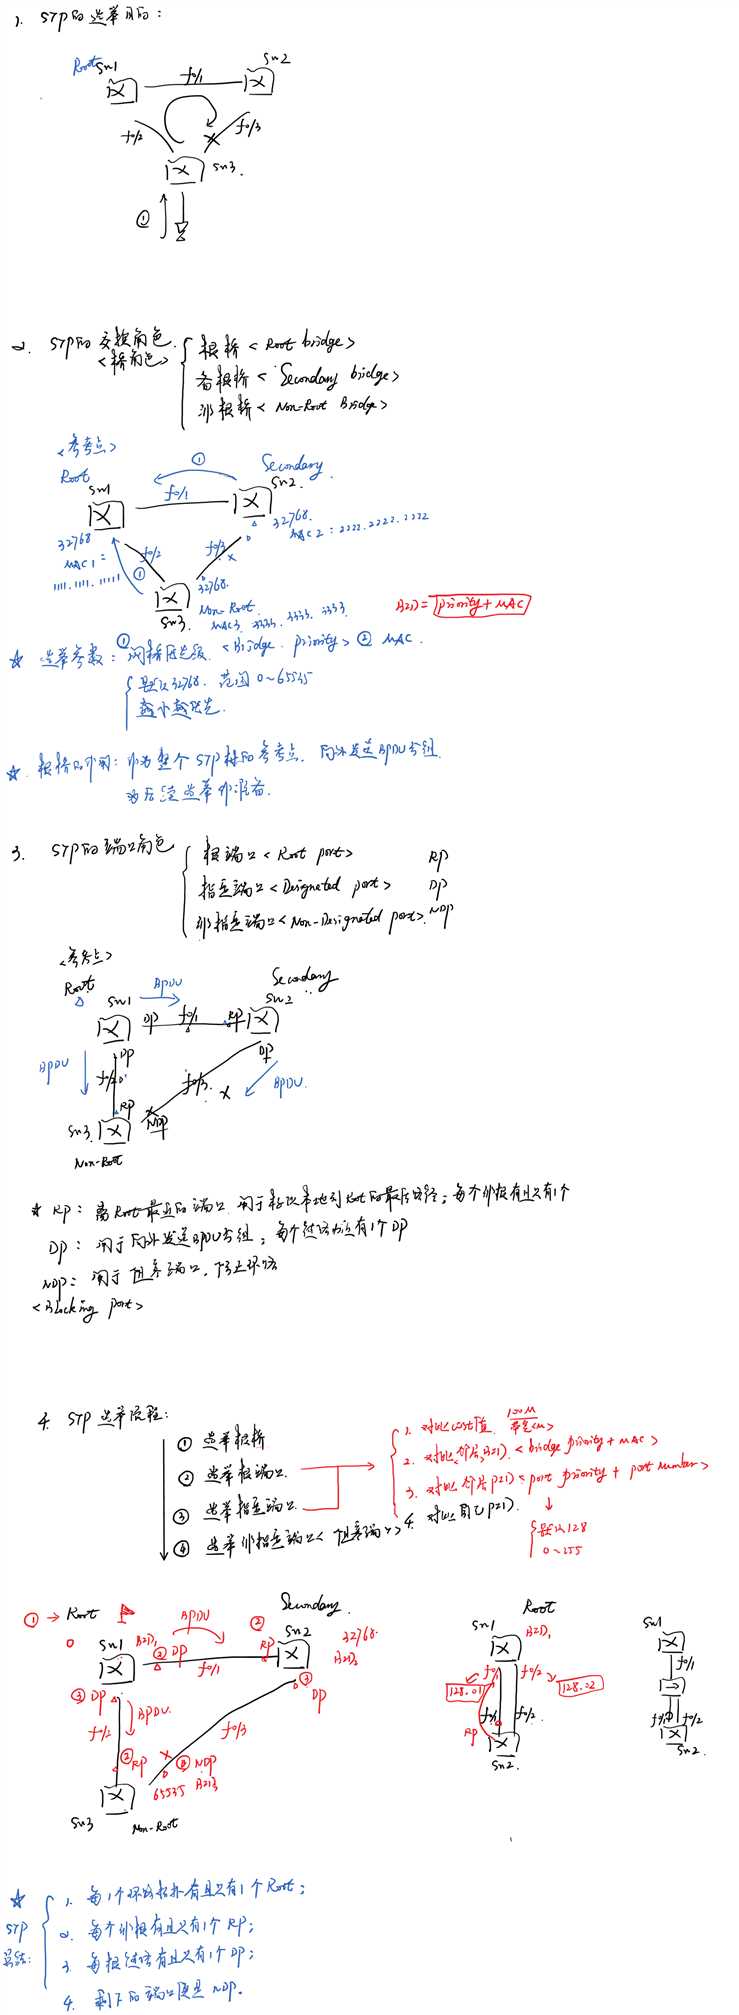 1. STP的选举目的:
Root
Sw1
f0/1
Sw2
f0/2
f0/3
Sw3.
①
2. STP的交换角色.
<桥角色>
根桥 < Root bridge>
备根桥 < Secondary bridge>
非根桥 < Non-Root Bridge>
<参考点>
Root
Sw1
①
Secondary
Sw2
f0/1
32768.
MAC2 : 2222.2222.2222
32768
MAC1 =
1111.1111.1111
f0/2
f0/3
①
32768.
Non-Root.
Sw3.
MAC3. 3333.3333.3333
BID= priority+MAC
☆ 选举参数: ①网桥优先级 <Bridge. priority> ② MAC.
默认32768. 范围 0~65535
越小越优先.
☆ 根桥的作用: 作为整个STP树的参考点, 向外发送BPDU分组.
为后续选举作准备.
3. STP的端口角色
根端口 < Root port> RP
指定端口 <Designated port> DP
非指定端口 <Non-Designated port>. NDP
<参考点>
Root
Sw1
BPDU
Secondary
Sw2
DP
f0/1
RP
DP
BPDU
f0/2
DP
f0/3.
BPDU.
RP
NDP
Sw3.
Non-Root
* RP: 离Root最近的端口. 用于转发本地到Root的最优路径; 每个非根有且只有1个
DP: 用于向外发送BPDU分组; 每个链路上有1个DP
NDP: 用于阻塞端口, 防止环路
<Blocking port>
4. STP 选举流程:
① 选举根桥
② 选举根端口.
③ 选举指定端口.
④ 选举非指定端口< 阻塞端口>
1. 对比cost值 100M 带宽<M>
2. 对比邻居BID. < bridge priority + MAC >
3. 对比邻居PID <port priority + port number>
4. 对比自己PID.
默认128
0~255
① → Root
0
Sw1
BID1
② DP
BPDU
f0/1
② RP
Secondary.
Sw2
32768.
BID2
③ DP
③ DP
f0/2
BPDU.
② RP
f0/3
④ NDP
65535 BID3
Sw3
Non-Root
Root
Sw1
BID1
f0/1
f0/2
128.01
128.02
f0/1
f0/2
RP
Sw2.
Sw1
f0/1
f0/1
f0/2
Sw2.
☆ STP总结:
1. 每1个环路拓扑有且只有1个Root;
2. 每个非根有且只有1个RP;
3. 每根链路有且只有1个DP;
4. 剩下的端口便是NDP.